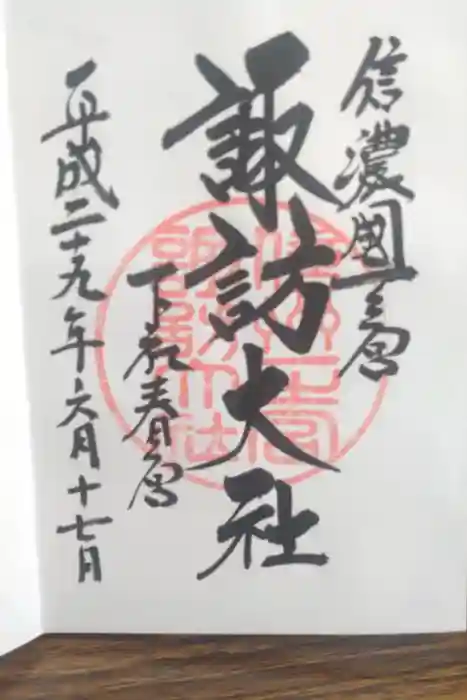 信濃國一之宮
諏訪大社
下社春宮
平成二十九年六月十七日